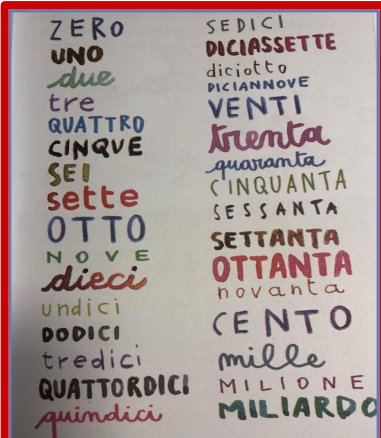 ZERO
UNO
due
tre
QUATTRO
CINQUE
SEI
sette
OTTO
NOVE
dieci
undici
DODICI
tredici
QUATTORDICI
quindici
SEDICI
DICIASSETTE
diciotto
DICIANNOVE
VENTI
trenta
quaranta
CINQUANTA
SESSANTA
SETTANTA
OTTANTA
novanta
CENTO
mille
MILIONE
MILIARDO